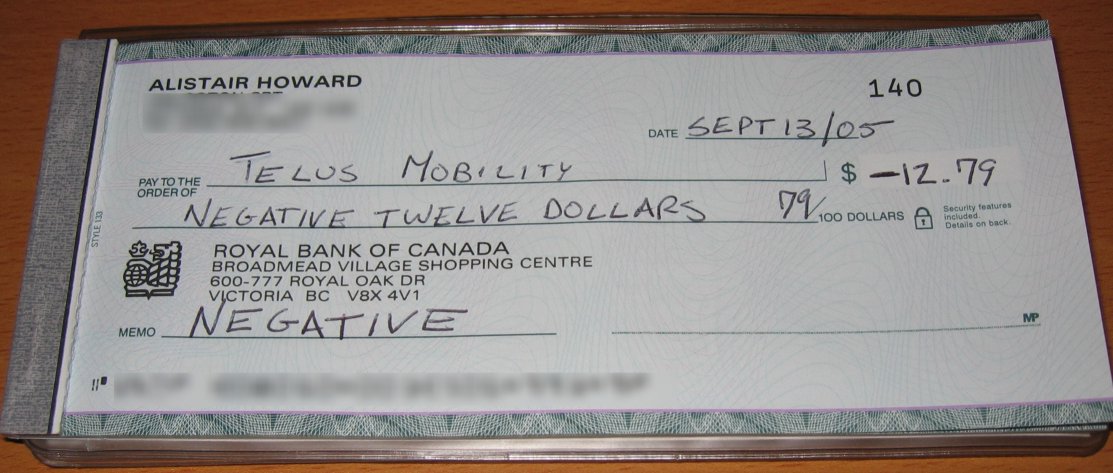 ALISTAIR HOWARD
140
DATE SEPT 13/05
PAY TO THE ORDER OF TELUS MOBILITY $ -12.79
NEGATIVE TWELVE DOLLARS 79/100 DOLLARS
Security features
included.
Details on back.
STYLE 133
ROYAL BANK OF CANADA
BROADMEAD VILLAGE SHOPPING CENTRE
600-777 ROYAL OAK DR
VICTORIA BC V8X 4V1
MEMO NEGATIVE
MP